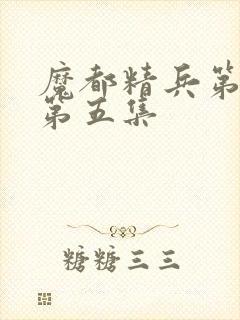 魔都精兵第
第五集
糖糖三三